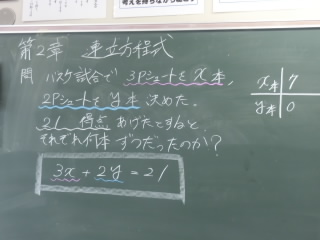 考えを持ちながら
第2章 連立方程式
問 バスケ試合で 3Pシュートを x本,
2Pシュートを y本 決めた.
21 得点 あげたとすると
それぞれ何本ずつだったのか?
3x + 2y = 21
x本 7
y本 0